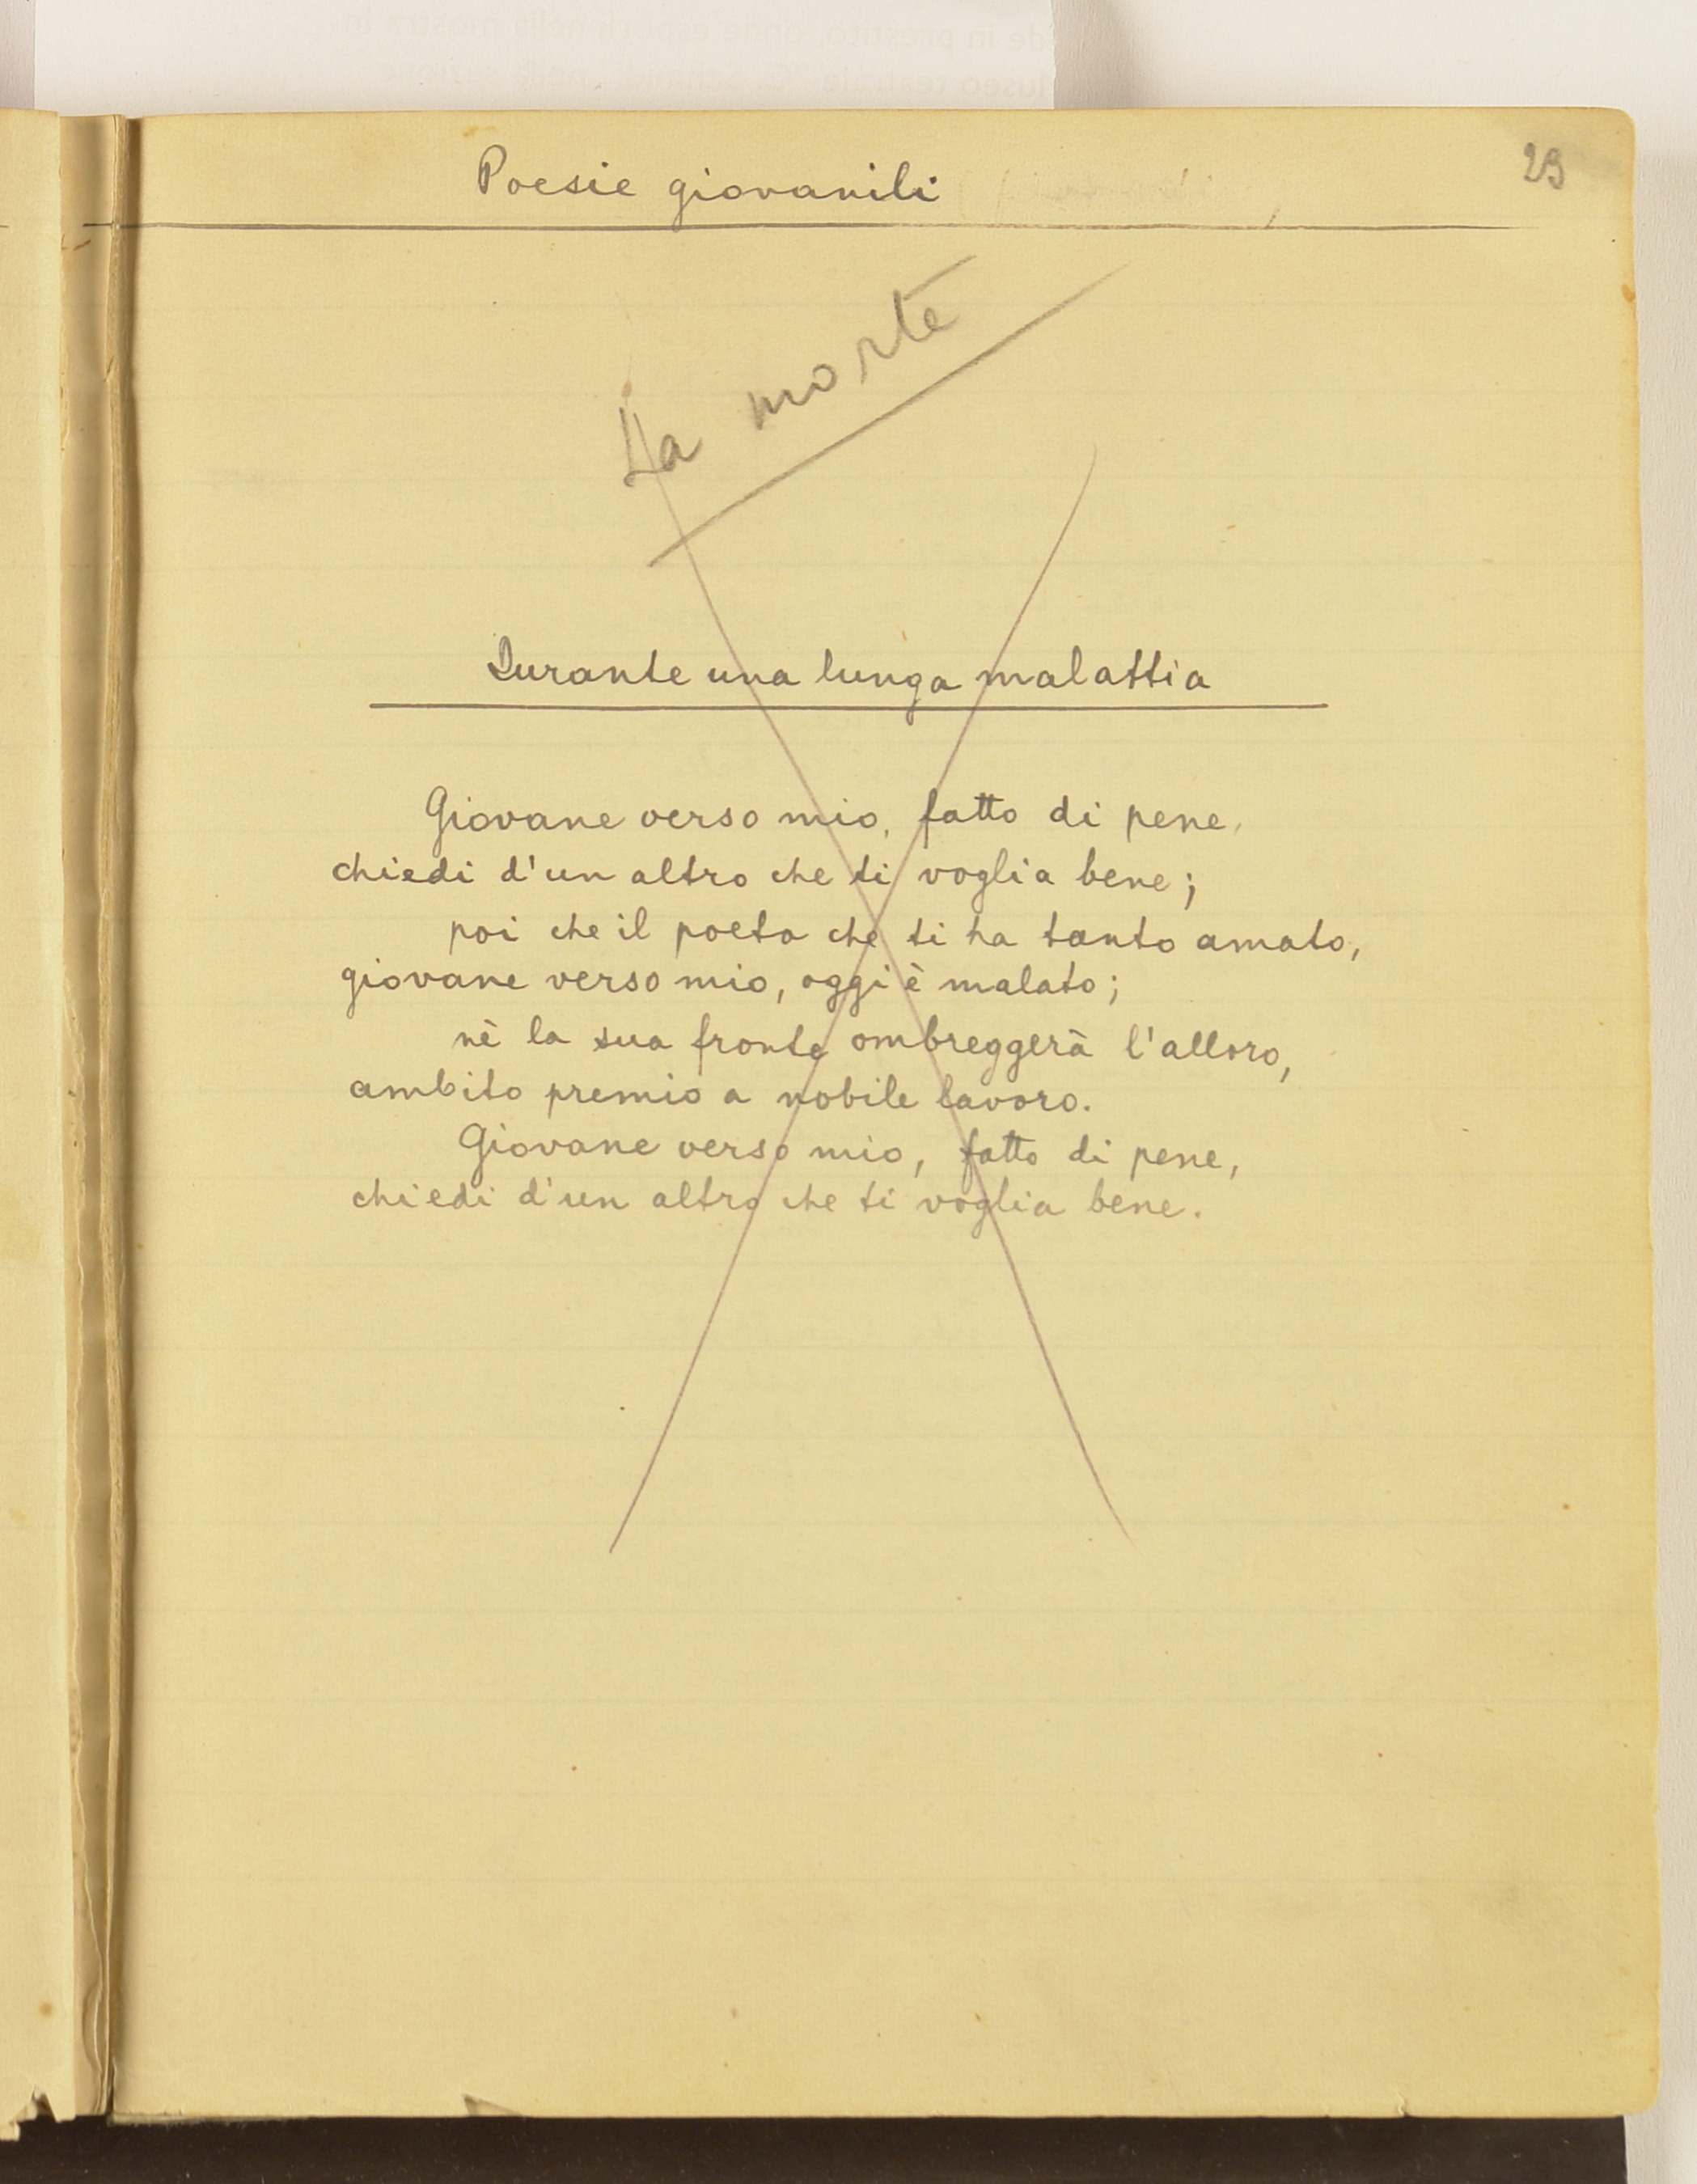 Poesie giovanili
23
La morte
Durante una lunga malattia
Giovane verso mio, fatto di pene,
chiedi d'un altro che ti voglia bene;
poi che il poeta che ti ha tanto amato,
giovane verso mio, oggi è malato;
nè la sua fronte ombreggerà l'alloro,
ambito premio a nobile lavoro.
Giovane verso mio, fatto di pene,
chiedi d'un altro che ti voglia bene.